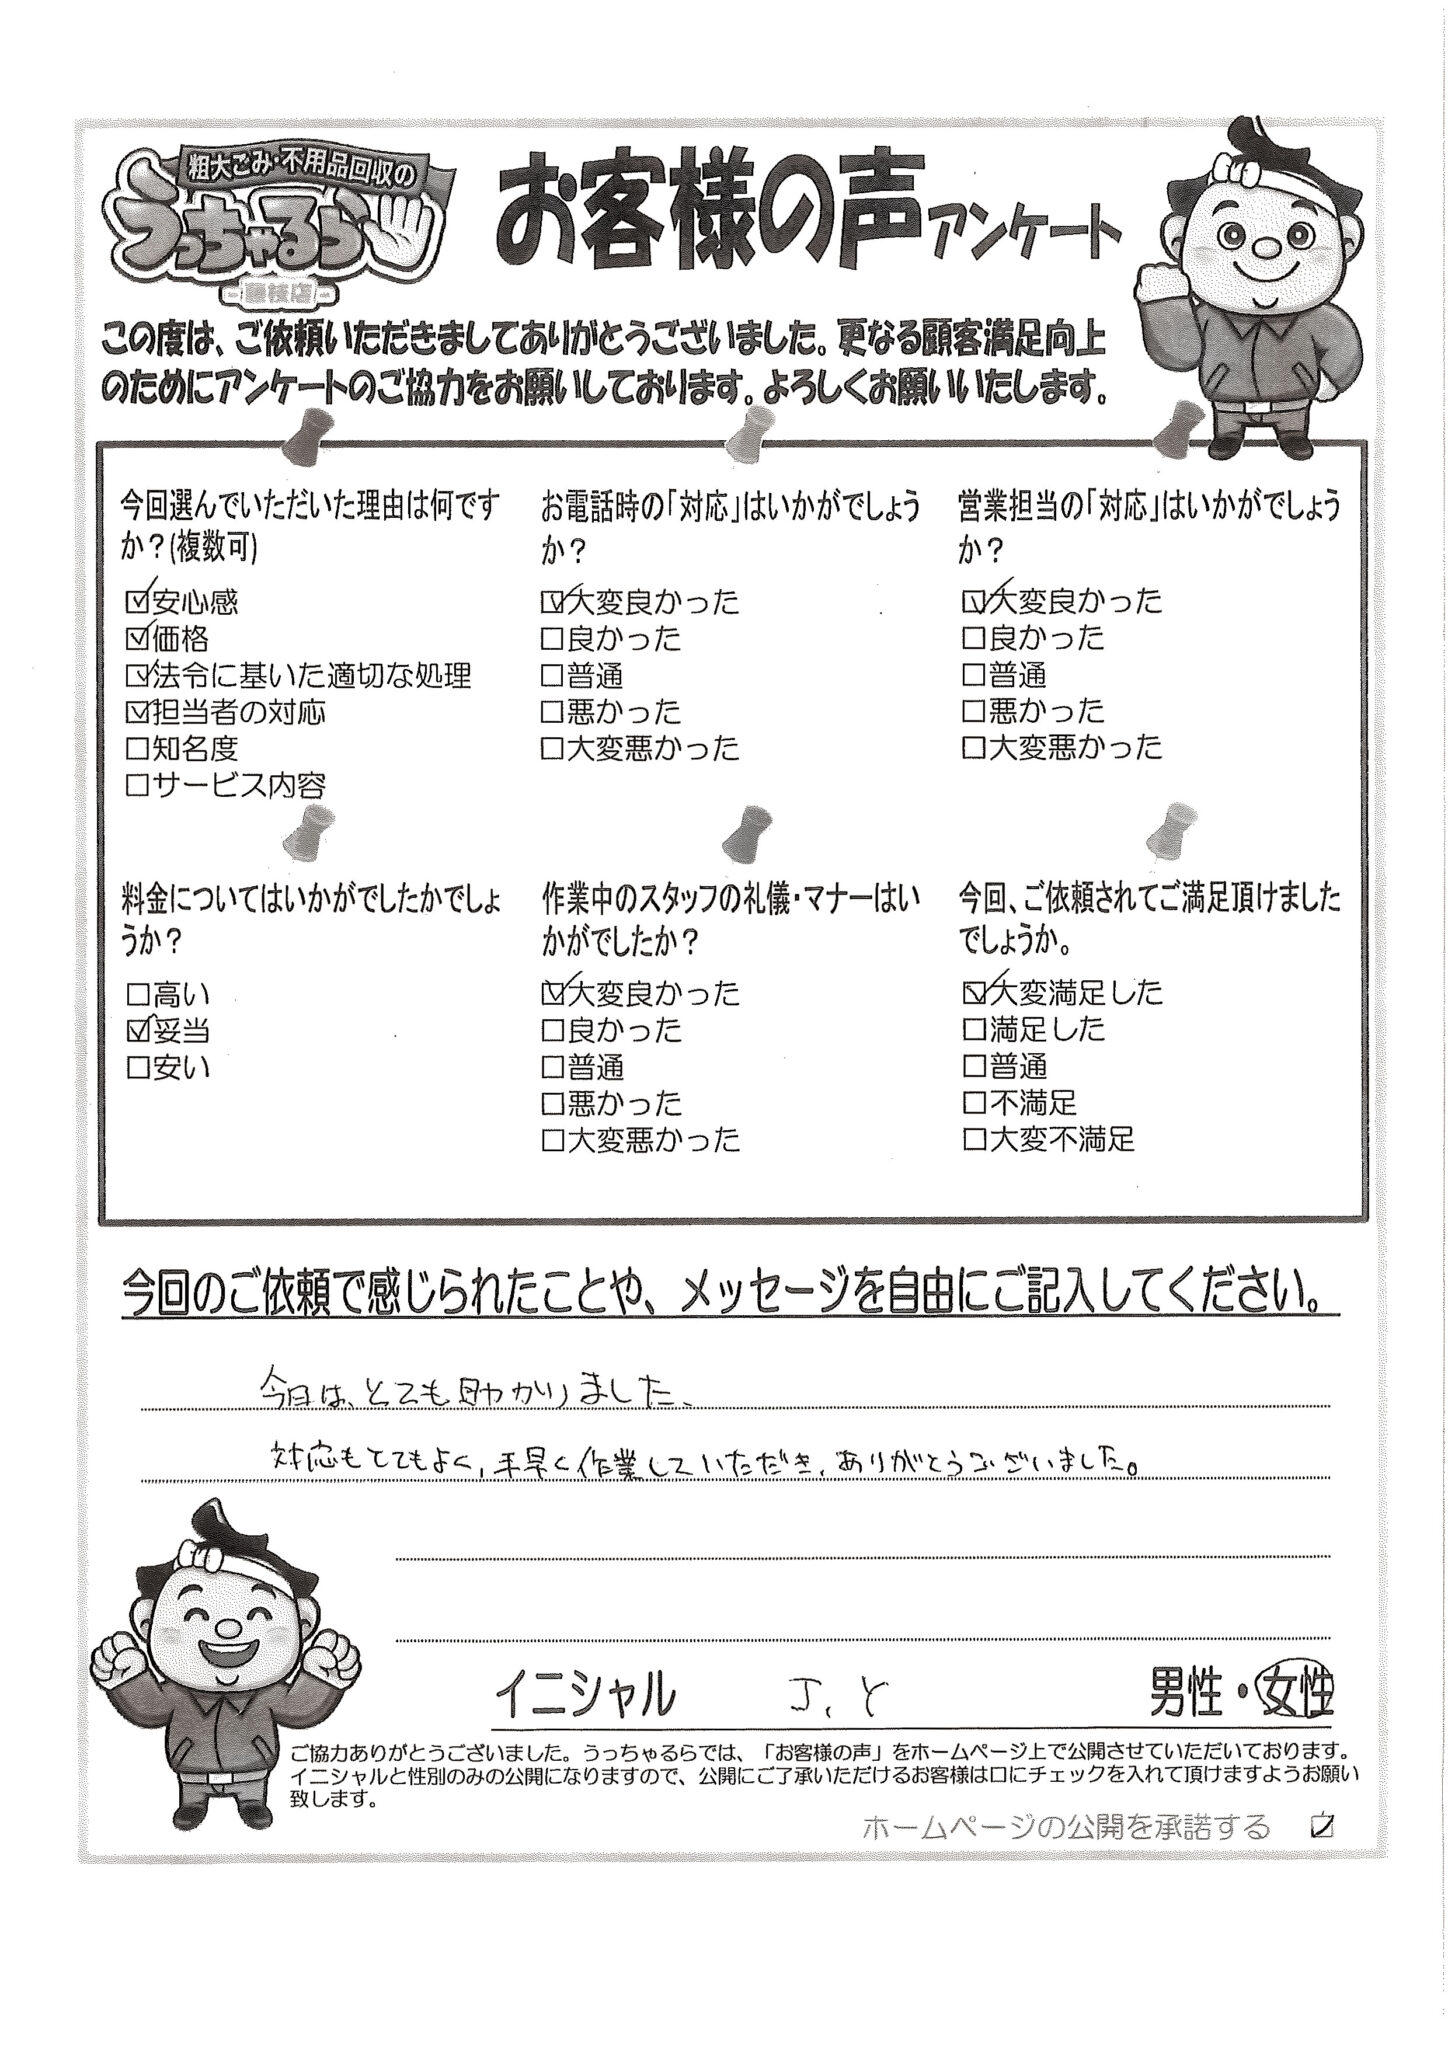 粗大ごみ・不用品回収の
うっちゃるら
-藤枝店-
お客様の声アンケート
この度は、ご依頼いただきましてありがとうございました。更なる顧客満足向上
のためにアンケートのご協力をお願いしております。よろしくお願いいたします。
今回選んでいただいた理由は何です
か？(複数可)
☑安心感
☑価格
☑法令に基いた適切な処理
☑担当者の対応
□知名度
□サービス内容
お電話時の「対応」はいかがでしょう
か？
☑大変良かった
□良かった
□普通
□悪かった
□大変悪かった
営業担当の「対応」はいかがでしょう
か？
☑大変良かった
□良かった
□普通
□悪かった
□大変悪かった
料金についてはいかがでしたかでしょ
うか？
□高い
☑妥当
□安い
作業中のスタッフの礼儀・マナーはい
かがでしたか？
☑大変良かった
□良かった
□普通
□悪かった
□大変悪かった
今回、ご依頼されてご満足頂けました
でしょうか。
☑大変満足した
□満足した
□普通
□不満足
□大変不満足
今回のご依頼で感じられたことや、メッセージを自由にご記入してください。
今日は、とても助かりました、
対応もとてもよく、手早く作業していただき、ありがとうございました。
イニシャル J.Y 男性・女性
ご協力ありがとうございました。うっちゃるらでは、「お客様の声」をホームページ上で公開させていただいております。
イニシャルと性別のみの公開になりますので、公開にご了承いただけるお客様は口にチェックを入れて頂けますようお願い
致します。
ホームページの公開を承諾する ☑